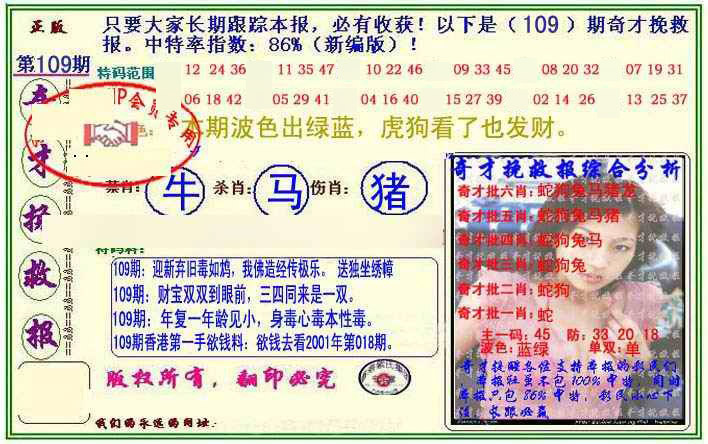 正版
只要大家长期跟踪本报，必有收获！以下是（109）期奇才挽救
报。中特率指数：86%（新编版）！
第109期
特码范围
12 24 36 11 35 47 10 22 46 09 33 45 08 20 32 07 19 31
06 18 42 05 29 41 04 16 40 15 27 39 02 14 26 13 25 37
P会员专用
色：本期波色出绿蓝，虎狗看了也发财。
才
救
报
禁肖：牛 杀肖：马 伤肖：猪
109期：迎新弃旧毒如鸩，我佛造经传极乐。 送独坐绣幛
109期：财宝双双到眼前，三四同来是一双。
109期：年复一年龄见小，身毒心毒本性毒。
109期香港第一手欲钱料：欲钱去看2001年第018期。
版权所有，翻印必究
我们的永远的网址：
奇才挽救报综合分析
奇才批六肖：蛇狗兔马猪龙
奇才批五肖：蛇狗兔马猪
奇才批四肖：蛇狗兔马
奇才批三肖：蛇狗兔
奇才批二肖：蛇狗
奇才批一肖：蛇
主一码：45 防：33 20 18
波色：蓝绿 单双：单
奇才提醒各位支持本报的彩民们
本报在虽不包100%中特，同时
本报只包86%中特，彩民小心下
注，长跟必赢